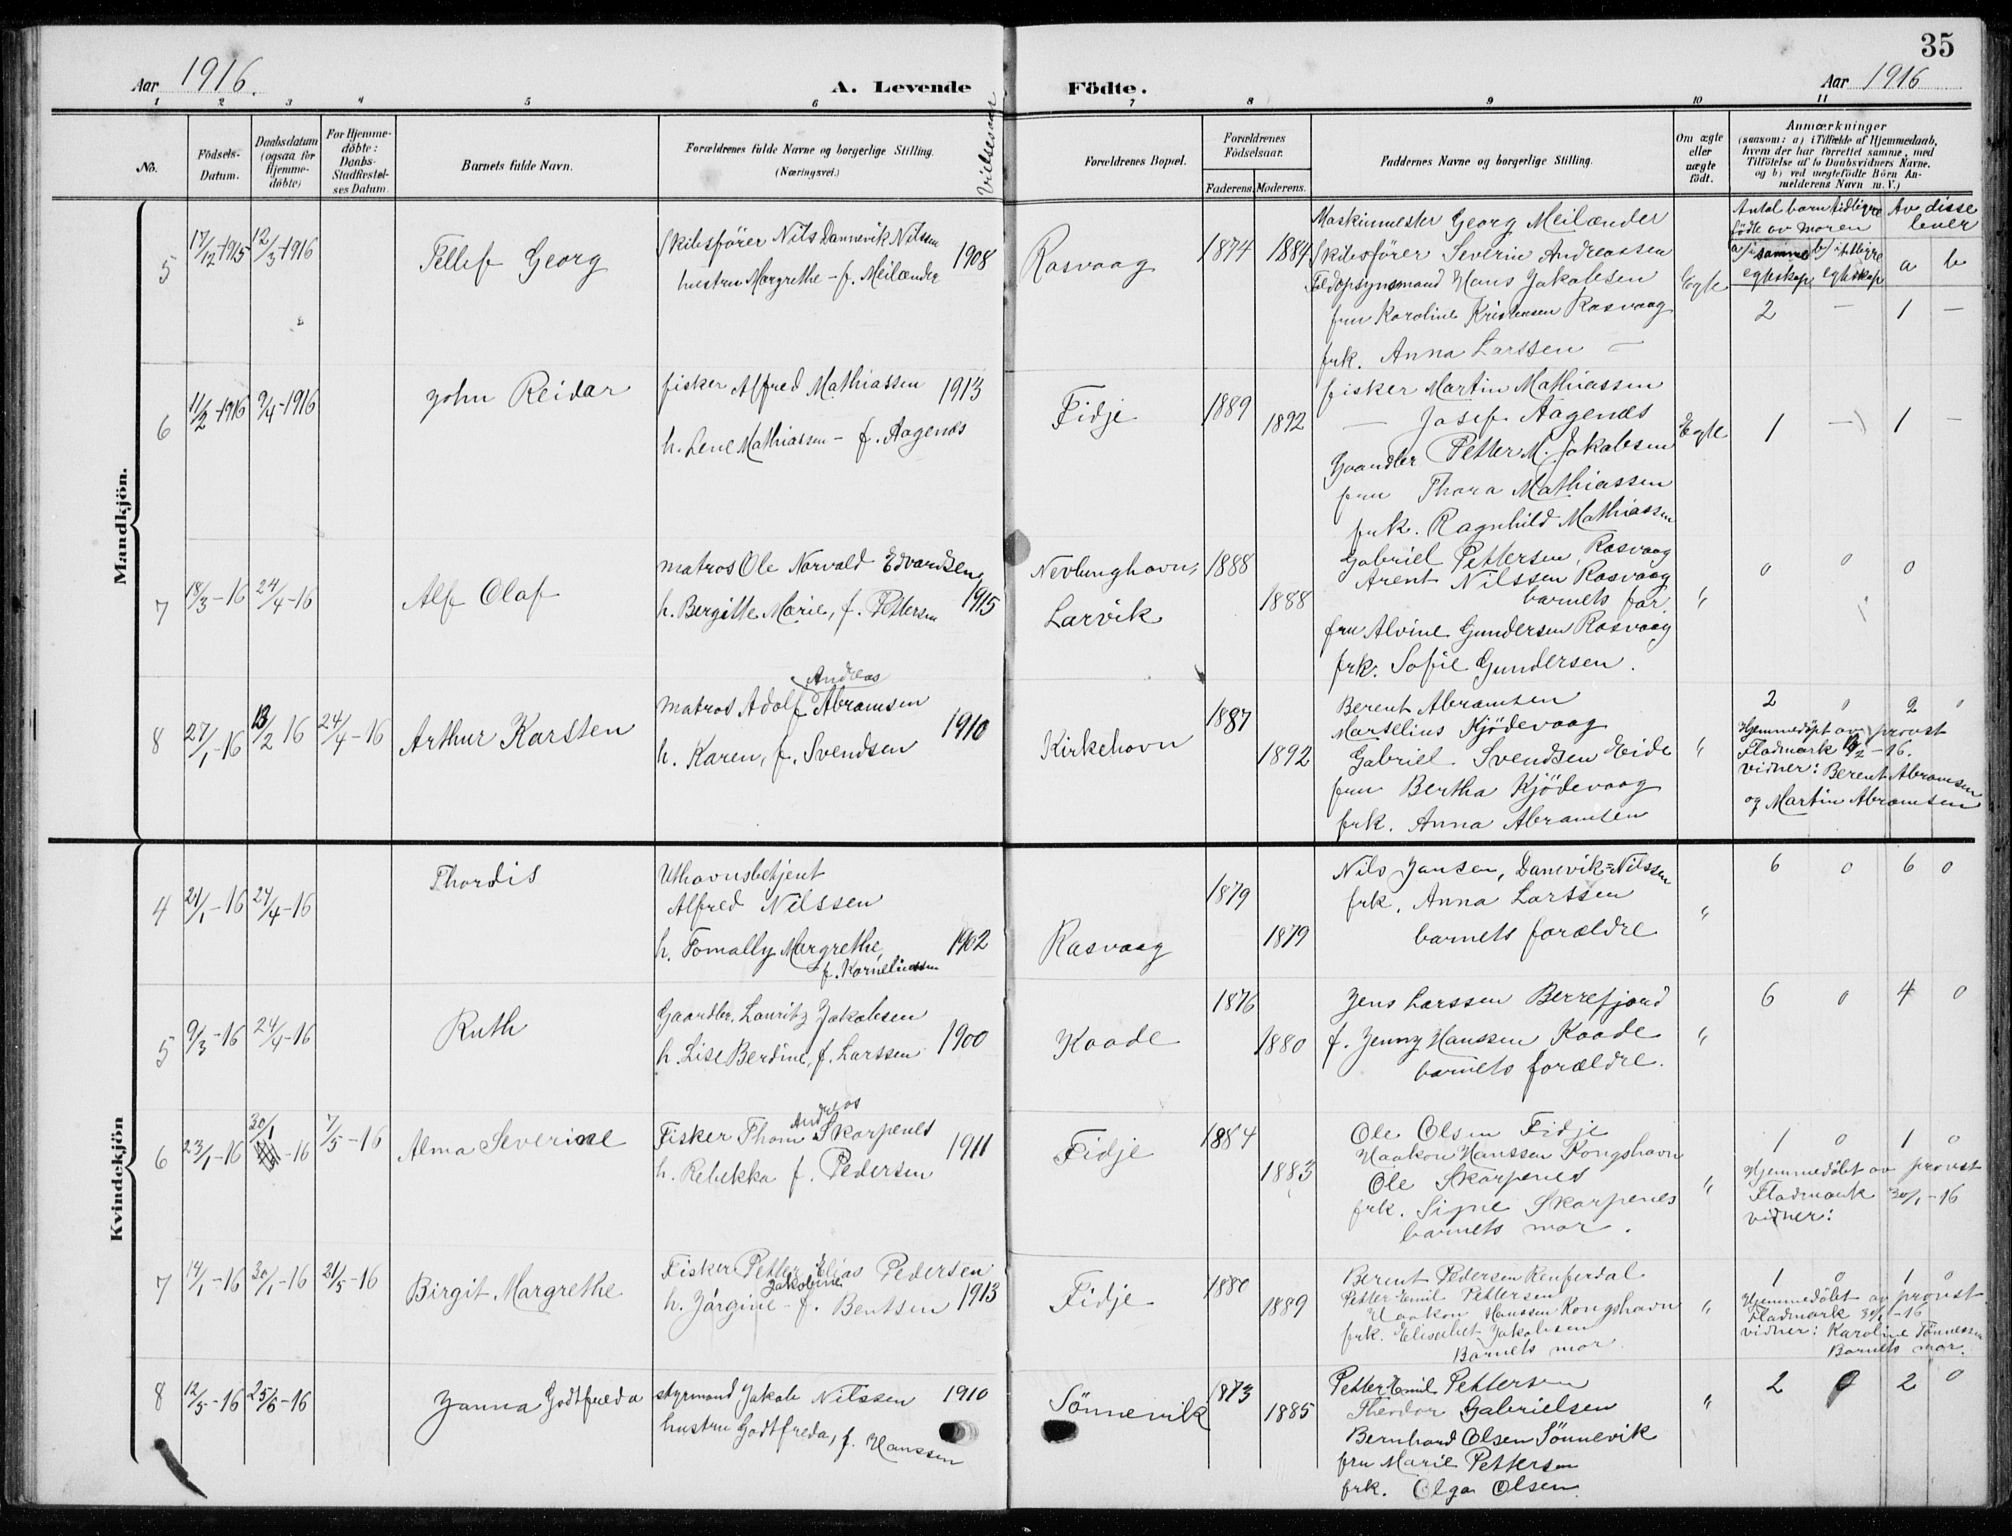 35
Aar 1916.
A. Levende
Födte.
Aar 1916
1 2 3 4 5 6 7 8 9 10 11
No.
Födsels-
Datum.
Daabsdatum
(ogsaa for
Hjemme-
döbte)
For Hjemme-
döbte:
Daabs-
Stadfæstel-
ses Datum.
Barnets fulde Navn.
Forældrenes fulde Navne og borgerlige Stilling.
(Næringsvei.)
Vielsesaar
Forældrenes Bopæl.
Forældrenes
Födselsaar.
Faderens. Moderens.
Faddernes Navne og borgerlige Stilling.
Om ægte
eller
uægte
födt.
Anmærkninger
(saasom: a) i Tilfælde af Hjemmedaab,
hvem der har forrettet samme, med
Tilföielse af to Daabsvidners Navne.
og b) ved uægtefödte Börn An-
melderens Navn m. V.)
Antal barn tidligre
födte av moren
Av disse
lever
a/ i samme
egteskap
b/ i tidligre
egteskap
a b
Mandkjön.
5
17/12 1915
12/3 1916
Tellef Georg
Skibsförer Nils Dannevik Nilssen
hustru Margrethe - f. Meilænder
1908
Rasvaag
1874 1884
Maskinmester Georg Meilænder
Skibsförer Severin Andreassen
Toldopsynsmand Hans Jakobsen
fru Karoline Kristensen Rasvaag
frk. Anna Larssen —
Egte
2 — 1 —
6
11/2 1916
9/4 1916
John Reidar
fisker Alfred Mathiassen
h. Lene Mathiassen - f. Aagenæs
1913
Fidje
1889
1892
fisker Martin Mathiassen
— Josef Aagenæs
Gaardbr Petter M. Jakobsen
fru Thora Mathiassen
frk. Ragnhild Mathiassen
Egte
1 — 1 —
7
18/3-16
24/4-16
Alf Olaf
matros Ole Norvald Edvardsen
h. Bergitte Marie, f. Pettersen
1915
Nevlunghavn,
Larvik
1888
1888
Gabriel Pettersen, Rasvaag
Arent Nilssen Rasvaag
barnets far.
fru Alvine Gundersen Rasvaag
frk. Sofie Gundersen.
"
0 0 0
8
27/1-16
13/2 16
24/4-16
Arthur Karsten
Andreas
matros Adolf Abramsen
h. Karen, f. Svendsen
1910
Kirkehavn
1887
1892
Berent Abramsen
Marselius Kjödevaag
Gabriel Svendsen Eide
fru Bertha Kjödevaag
frk. Anna Abramsen
"
2 0 2 0
Hjemmedöpt av provst
Fladmark 13/2-16.
vidner: Berent Abramsen
og Martin Abramsen
Kvindekjön
4
21/1-16
24/4-16
Thordis
Uthavnsbetjent
Alfred Nilssen
h. Tomally Margrethe,
f. Korneliussen
1902
Rasvaag
1879
1879
Nils Jansen, Danevik-Nilssen
frk. Anna Larssen
barnets forældre
"
6 0 6 0
5
9/3-16
24/4-16
Ruth
Gaardbr. Lauritz Jakobsen
h. Lise Berdine, f. Larssen
1900
Kaade
1876
1880
Jens Larssen Berrefjord
f. Jenny Hanssen Kaade
barnets forældre.
"
6 0 4 0
6
23/1-16
30/1 -16
7/5-16
Alma Severine
Andreas
Fisker Thom Skarpenes
h. Rebekka f. Pedersen
1911
Fidje
1884
1883
Ole Olsen Fidje
Haakon Hanssen Kongshavn
Ole Skarpenes
frk. Signe Skarpenes
barnets mor.
"
1 0 1 0
Hjemmedöbt av provst
Fladmark 30/1-16
vidner:
7
14/1-16
30/1-16
21/5-16
Birgit Margrethe
Fisker Petter Elias Pedersen
Jakobine
h. Järgine - f. Bentsen 1913
Fidje
1880
1889
Berent Pedersen Renferdal
Petter Emil Pettersen
Haakon Hanssen Kongshavn
frk. Elisabet Jakobsen
Barnets mor
"
1 0 1 0
Hjemmedöbt av provst
Fladmark 30/1-16
vidner: Karoline Tönnessen
Barnets mor.
8
12/5-16
25/6-16
Janna Godtfreda
styrmand Jakob Nilssen
hustru Godtfreda, f. Hanssen
1910
Sönnevik
1873
1885
Petter Emil Pettersen
Theodor Gabrielsen
Bernhard Olsen Sönnevik
fru Marie Pettersen
frk. Olga Olsen.
"
2 0 2 0